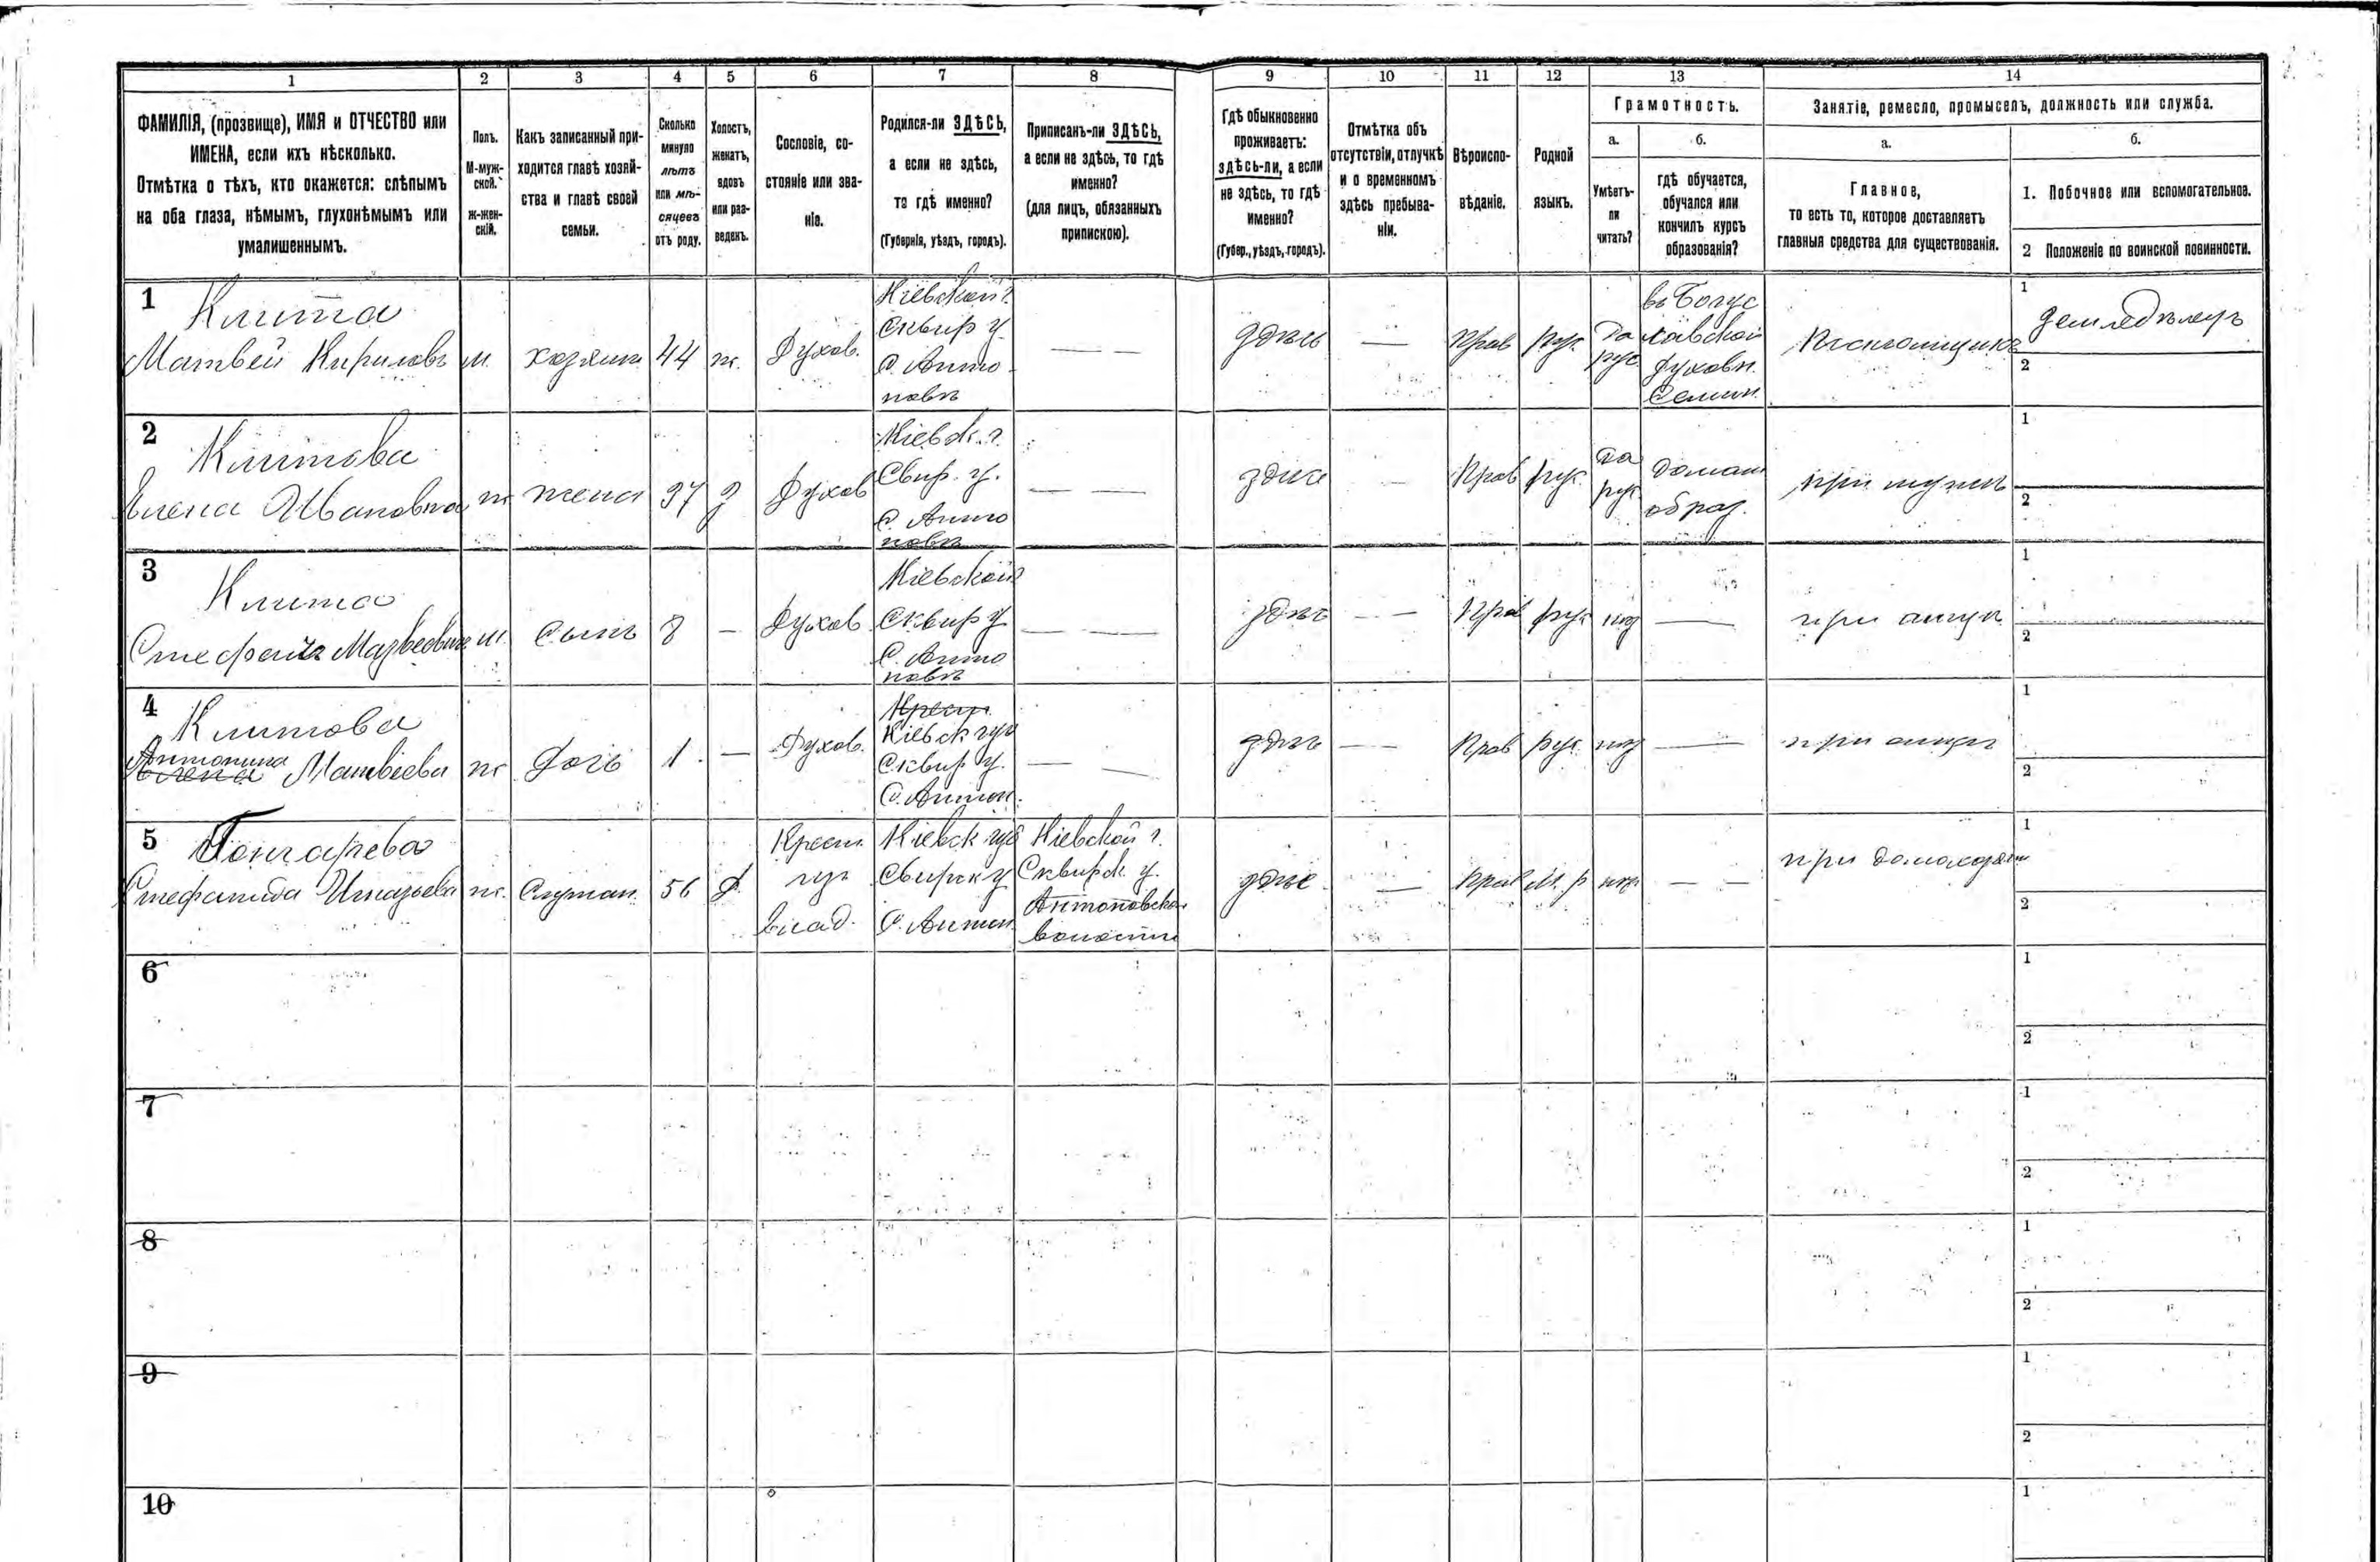 1 2 3 4 5 6 7 8 9 10 11 12 13 14
ФАМИЛІЯ, (прозвище), ИМЯ и ОТЧЕСТВО или
ИМЕНА, если ихъ нѣсколько.
Отмѣтка о тѣхъ, кто окажется: слѣпымъ
на оба глаза, нѣмымъ, глухонѣмымъ или
умалишеннымъ.
Полъ.
М-муж-
ской.
ж-жен-
скій.
Какъ записанный при-
ходится главѣ хозяй-
ства и главѣ своей
семьи.
Сколько
минуло
лѣтъ
или мѣ-
сяцевъ
отъ роду.
Холостъ,
женатъ,
вдовъ
или раз-
веденъ.
Сословіе, со-
стояніе или зва-
ніе.
Родился-ли ЗДѢСЬ,
а если не здѣсь,
то гдѣ именно?
(Губернія, уѣздъ, городъ).
Приписанъ-ли ЗДѢСЬ,
а если не здѣсь, то гдѣ
именно?
(для лицъ, обязанныхъ
припискою).
Гдѣ обыкновенно
проживаетъ:
здѣсь-ли, а если
не здѣсь, то гдѣ
именно?
(Губер., уѣздъ, городъ).
Отмѣтка объ
отсутствіи, отлучкѣ
и о временномъ
здѣсь пребыва-
ніи.
Вѣроиспо-
вѣданіе.
Родной
языкъ.
Грамотность.
а.
Умѣетъ-
ли
читать?
б.
гдѣ обучается,
обучался или
кончилъ курсъ
образованія?
Занятіе, ремесло, промыселъ, должность или служба.
а.
Главное,
то есть то, которое доставляетъ
главныя средства для существованія.
б.
1. Побочное или вспомогательное.
2 Положеніе по воинской повинности.
1
Клита
Матвей Кириловъ
м.
хозяин
44
ж.
Духов.
Кіевской г.
Сквир у
С. Анто
новъ
— —
здѣсь
—
Прав
рус.
да
рус
въ Богус
лавской
духовн.
Семин.
Псаломщикъ
1
земледѣлецъ
2
2
Клитова
Елена Ивановна
ж
жена
37
З
Духов
Кіевск. г.
Свир. у.
С. Анто
новъ
— —
здѣс
—
Прав
рус.
да
рус
домаш
образ.
при мужѣ
1
2
3
Клита
Стефанъ Матвеевичъ
м.
сынъ
8
—
Духов
Кіевской
Сквир у
С. Анто
новъ
— —
здѣс
— —
Прав
рус
—
при отцѣ
1
2
4
Клитова
Антонина
Елена Матвіева
ж
Дочь
1.
—
Духов.
Крест.
Кіевск губ
Сквир у.
С. Антон.
— —
здѣс
— —
Прав
рус
—
при отцѣ
1
2
5
Гончарева
Стефанида Игнатьева
ж.
Служан.
56
Д.
Крест.
из
влад.
Кіевск губ
Свирск у
С. Антон.
Кіевской г.
Сквирск. у.
Антоновской
волости
здѣс
—
Прав
М. р
— —
при домохозяин
1
2
6
1
2
7
1
2
8
1
2
9
1
2
10
1